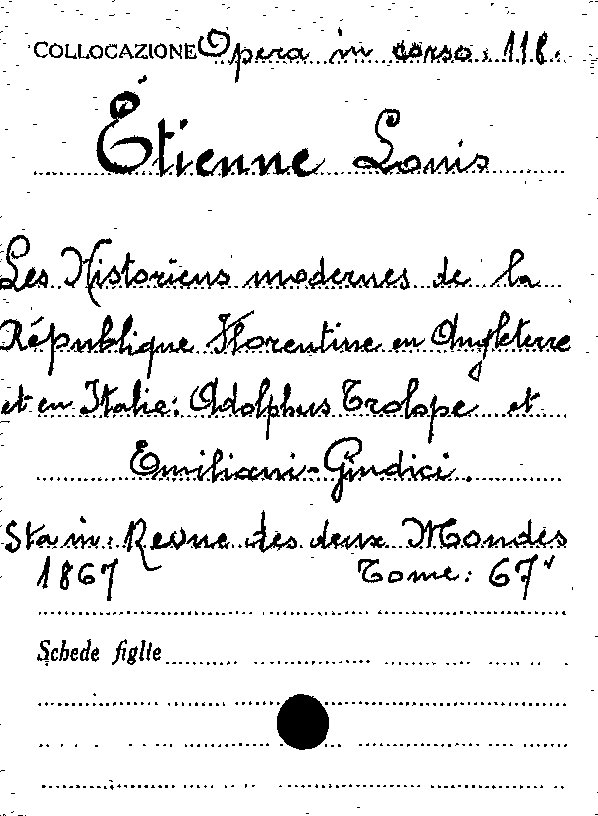 COLLOCAZIONE Opera in corso. 118.
Étienne Louis
Les Historiens modernes de la
République Florentine en Angleterre
et en Italie: Adolphus Trolope et
Emiliani-Giudici.
Sta in: Revue des deux Mondes
1867 Tome: 67°
Schede figlie